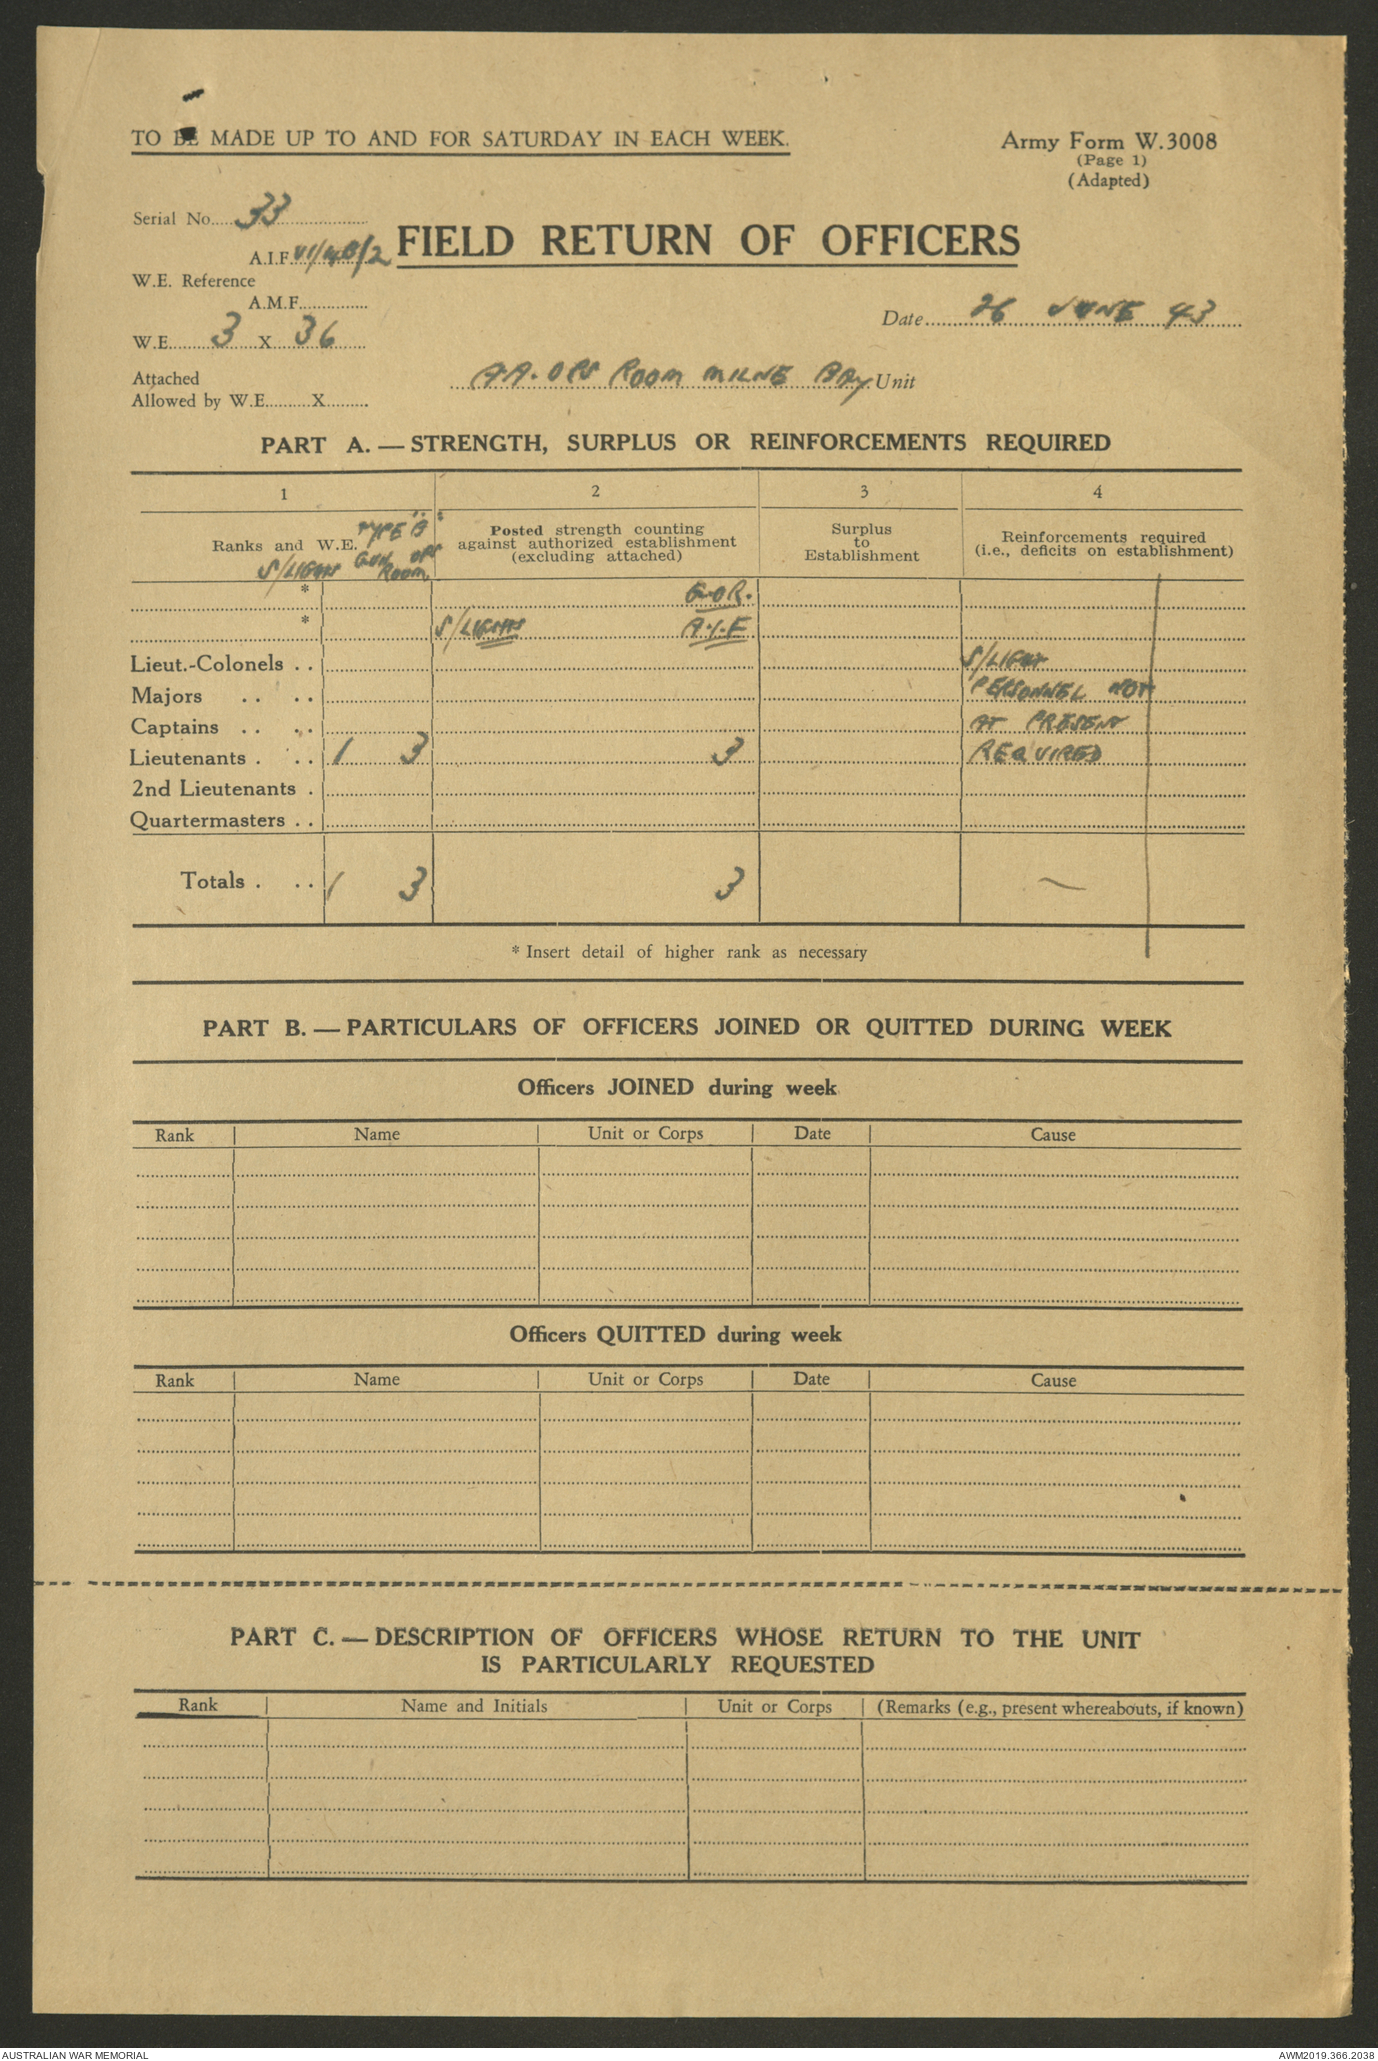 TO BE MADE UP TO AND FOR SATURDAY IN EACH WEEK.
Army Form W.3008
(Page 1)
(Adapted)
Serial No. 33
FIELD RETURN OF OFFICERS
A.I.F. VI/4B/2
W.E. Reference
A.M.F.
Date 26 JUNE 43
W.E. 3 X 36
Attached
Allowed by W.E. X
AA. OPS ROOM MILNE BAY Unit
PART A. — STRENGTH, SURPLUS OR REINFORCEMENTS REQUIRED
1 2 3 4
Ranks and W.E. TYPE "B" GUN OPS ROOM
S/LIGHTS
Posted strength counting against authorized establishment (excluding attached)
Surplus to Establishment
Reinforcements required (i.e., deficits on establishment)
* G.O.R.
* S/LIGHTS A.I.F
Lieut.-Colonels . . S/LIGHT
Majors . . . . PERSONNEL NOT
Captains . . . . AT PRESENT
Lieutenants . . . 1 3 3 REQUIRED
2nd Lieutenants .
Quartermasters . .
Totals . . . 1 3 3 —
* Insert detail of higher rank as necessary
PART B. — PARTICULARS OF OFFICERS JOINED OR QUITTED DURING WEEK
Officers JOINED during week
Rank Name Unit or Corps Date Cause
Officers QUITTED during week
Rank Name Unit or Corps Date Cause
PART C. — DESCRIPTION OF OFFICERS WHOSE RETURN TO THE UNIT
IS PARTICULARLY REQUESTED
Rank Name and Initials Unit or Corps (Remarks (e.g., present whereabouts, if known)
AUSTRALIAN WAR MEMORIAL
AWM2019.366.2038